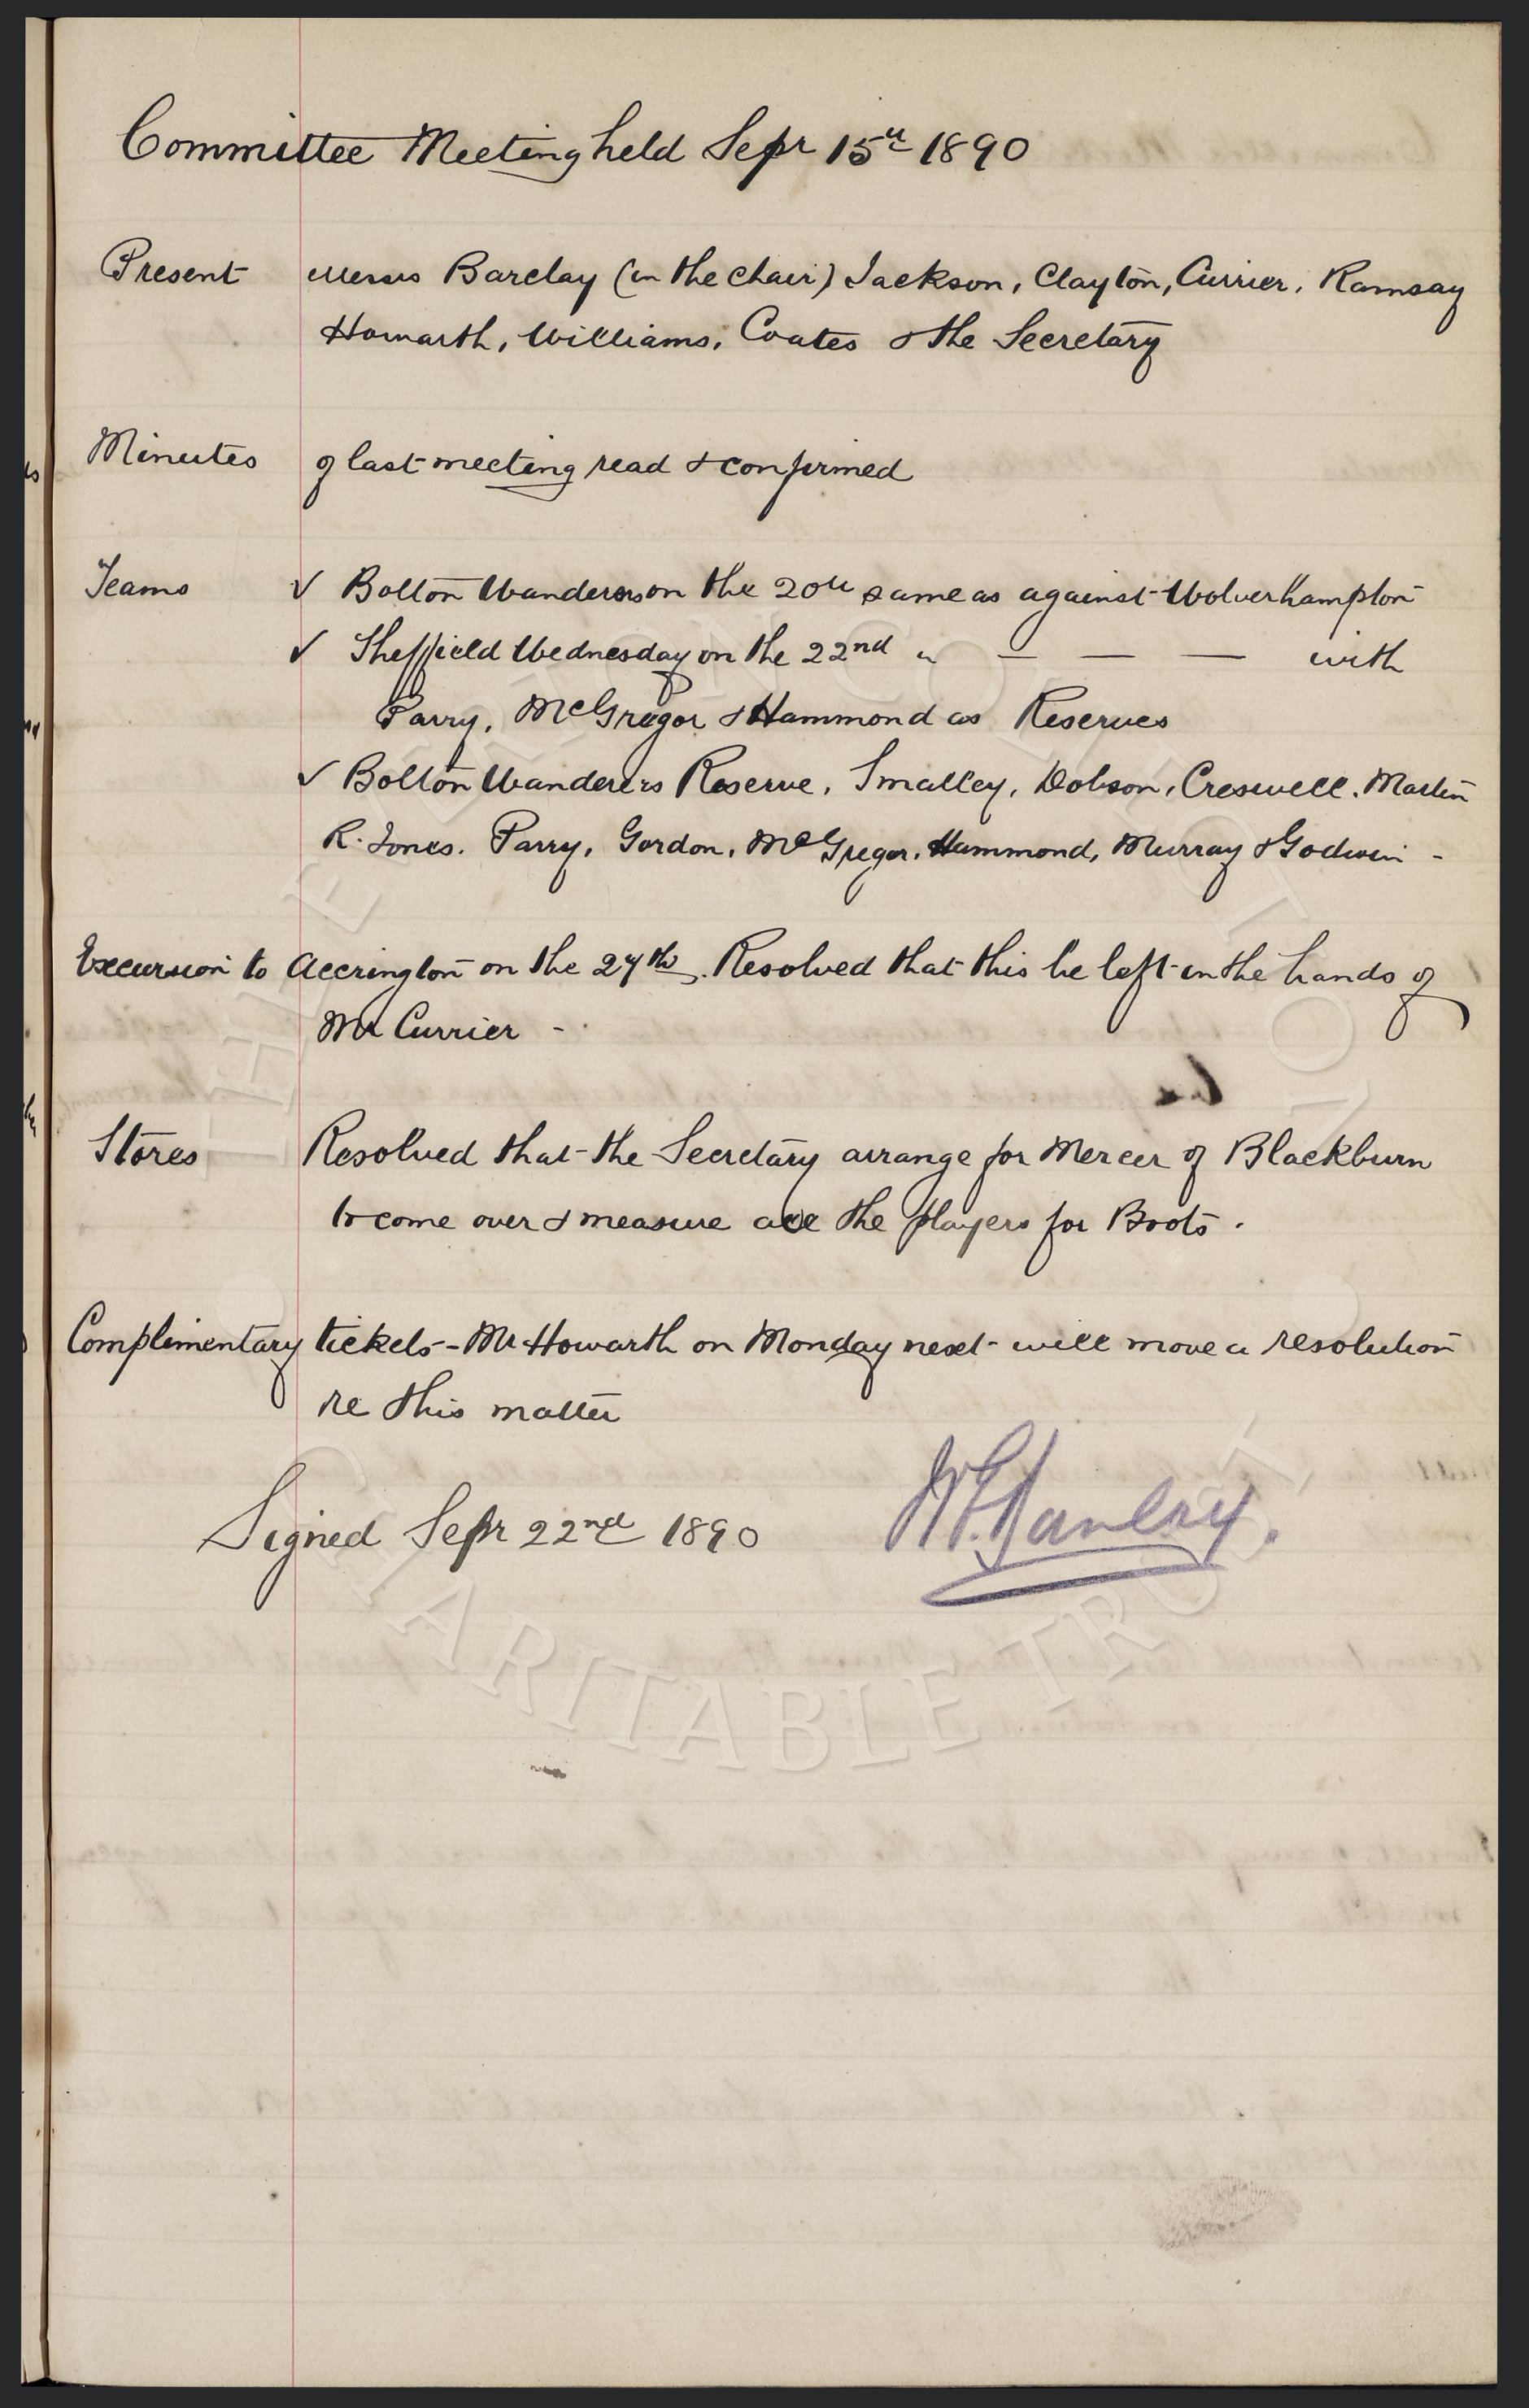 Committee Meeting held Sepr 15th 1890
Present Messrs Barclay (in the chair) Jackson, Clayton, Currier, Ramsay
Howarth, Williams, Coates & the Secretary
Minutes of last meeting read & confirmed
Teams ✓ Bolton Wanderers on the 20th same as against Wolverhampton
✓ Sheffield Wednesday on the 22nd " — — — with
Parry, McGregor & Hammond as Reserves
✓ Bolton Wanderers Reserve, Smalley, Dobson, Creswell, Martin
R. Jones. Parry, Gordon, McGregor, Hammond, Murray & Godwin -
Excursion to Accrington on the 27th. Resolved that this be left in the hands of
Mr Currier -
Stores Resolved that the Secretary arrange for Mercer of Blackburn
to come over & measure all the players for Boots.
Complimentary tickets - Mr Howarth on Monday next will move a resolution
re this matter
Signed Sepr 22nd 1890
THE EVERTON COLLECTION
CHARITABLE TRUST